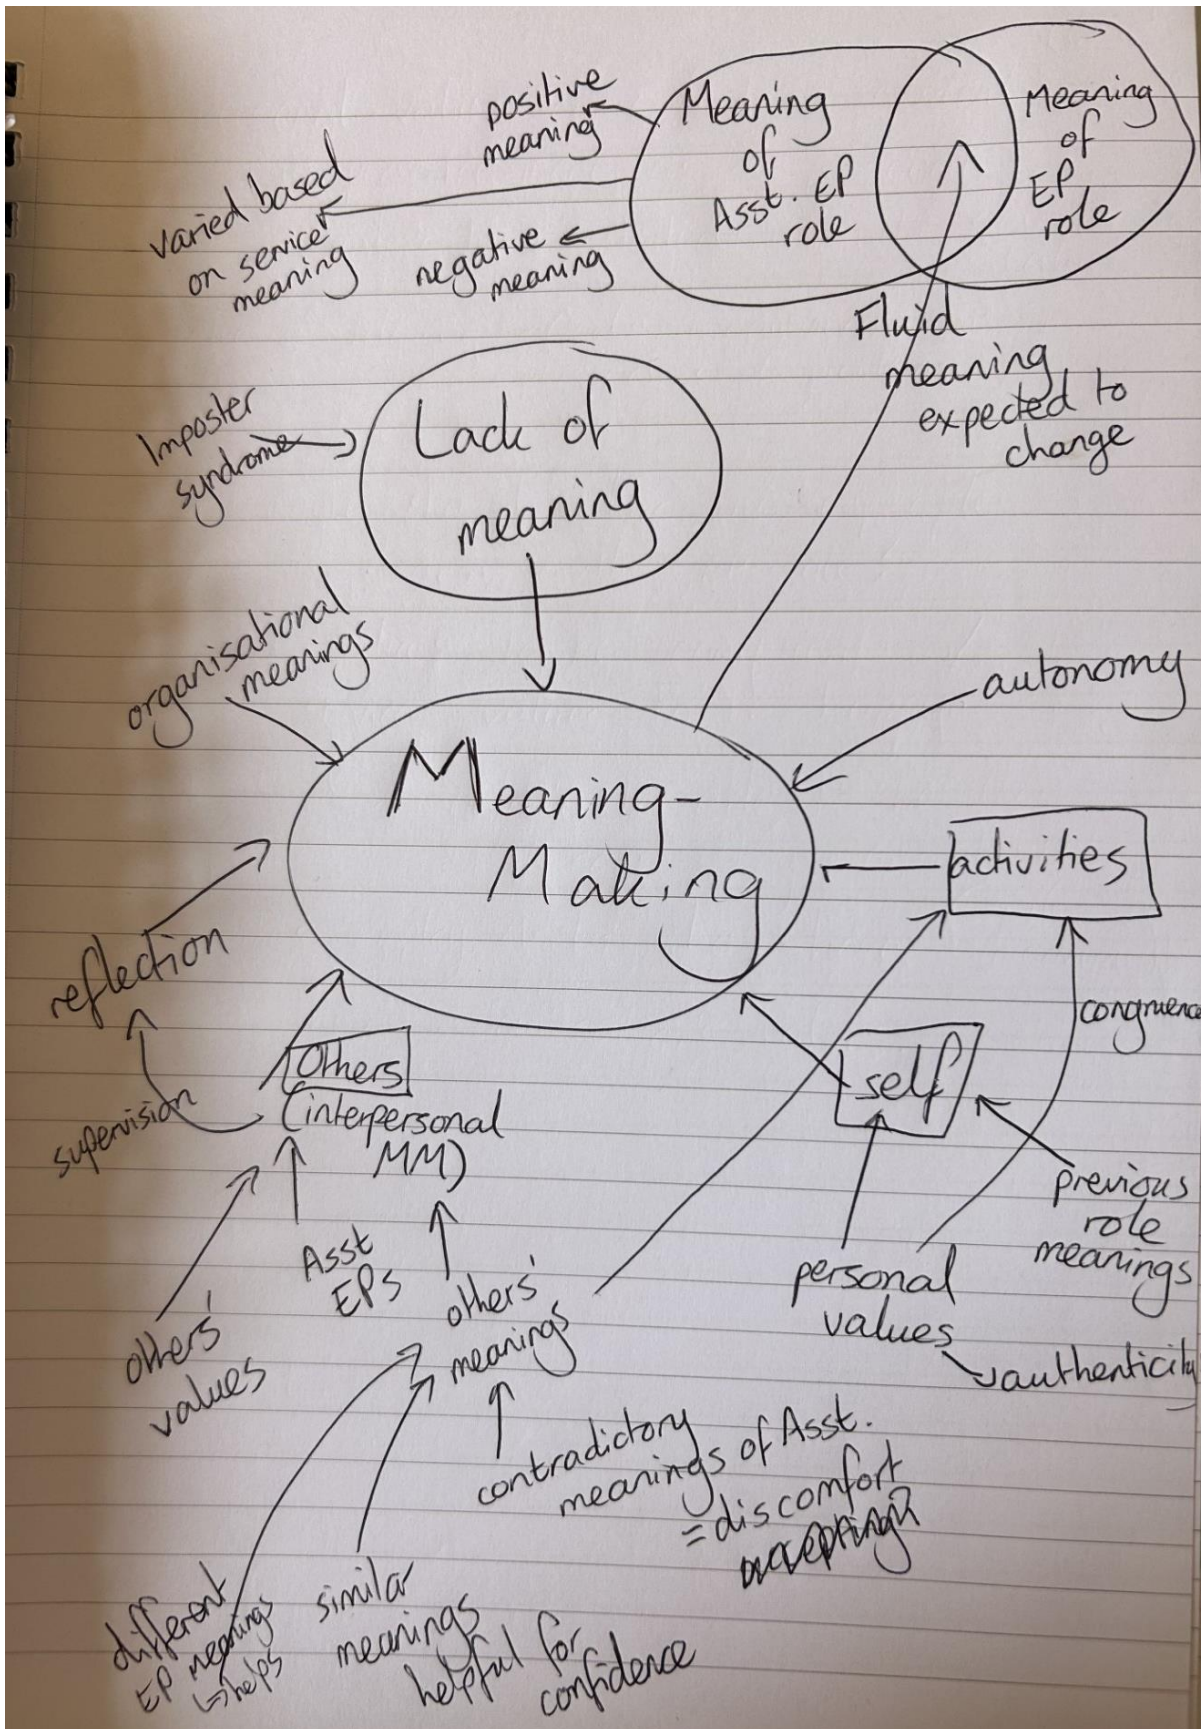 positive
meaning
Meaning
of
Asst. EP
role
Meaning
of
EP
role
varied based
on service
meaning
negative
meaning
Fluid
meaning
expected to
change
Imposter
syndrome
Lack of
meaning
organisational
meanings
autonomy
Meaning-
Making
activities
reflection
congruence
Others
(interpersonal
MM)
self
supervision
previous
role
meanings
Asst
EPs
others'
meanings
personal
values
authenticity
others'
values
contradictory
meanings of Asst.
= discomfort
accepting?
different
EP meanings
↳ helps
similar
meanings
helpful for
confidence